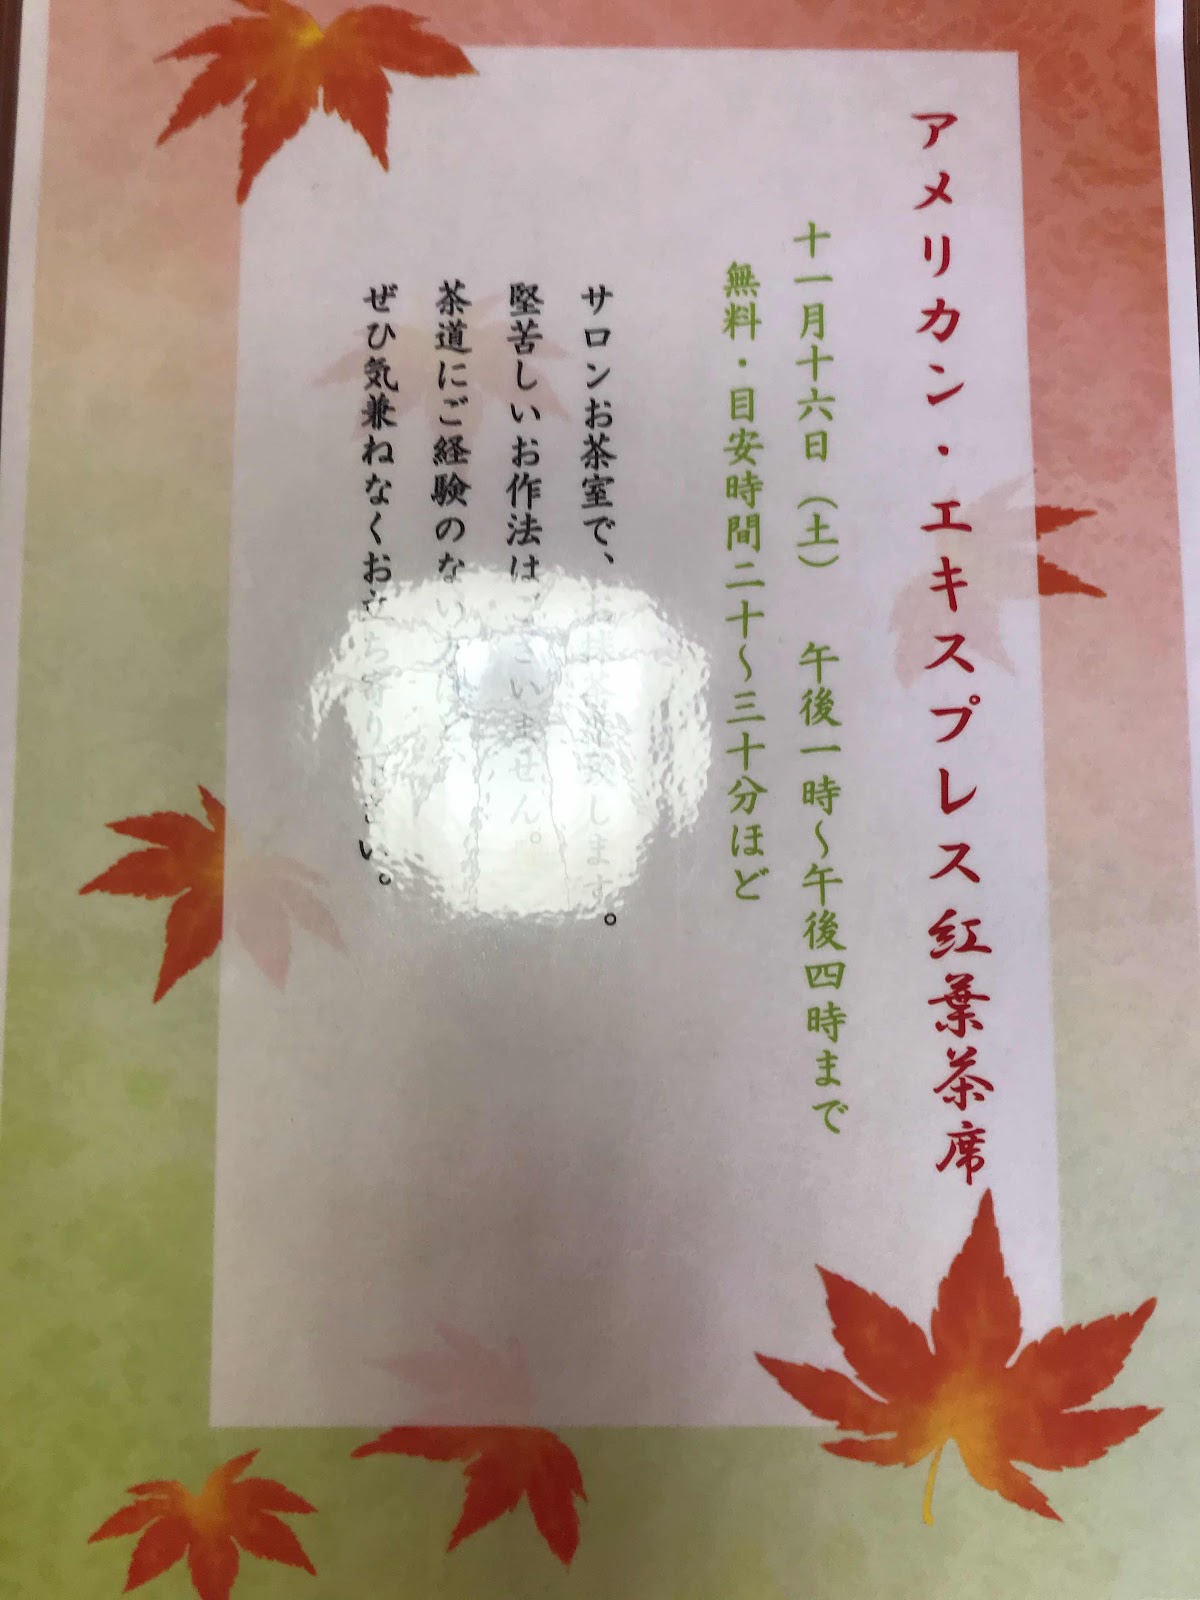 アメリカン・エキスプレス 紅葉茶席
十一月十六日（土） 午後一時～午後四時まで
無料・目安時間二十～三十分ほど
サロンお茶室で、 します。
堅苦しいお作法はございません。
茶道にご経験のない方
ぜひ気兼ねなくお立ち寄り下さい。